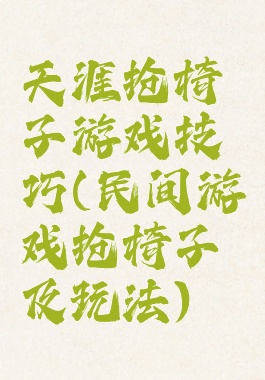 天涯抢椅
子游戏技
巧(民间游
戏抢椅子
及玩法)